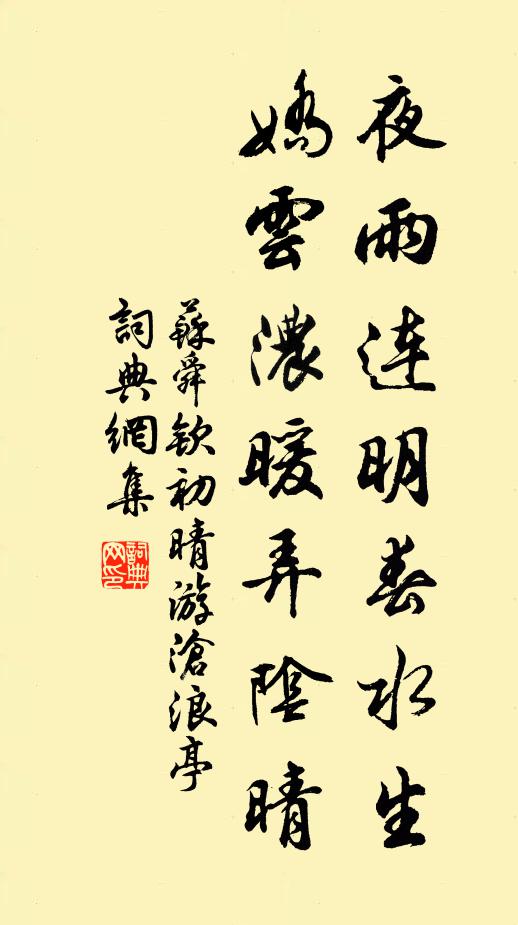 夜雨連明春水生
嬌雲濃暖弄陰晴
蘇舜欽初晴游滄浪亭
詞典網集
詞典网印